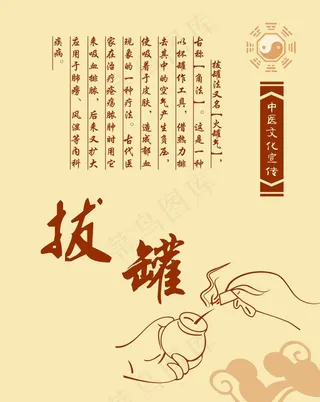 中医文化宣传
拔罐法又名【火罐气】，
古称【角法】。这是一种
以杯罐作工具，借热力排
去其中的空气产生负压，
使吸着于皮肤，造成郁血
现象的一种疗法。古代医
家在治疗疮疡脓肿时用它
来吸血排脓，后来又扩大
应用于肺痨、风湿等内科
疾病。
拔罐